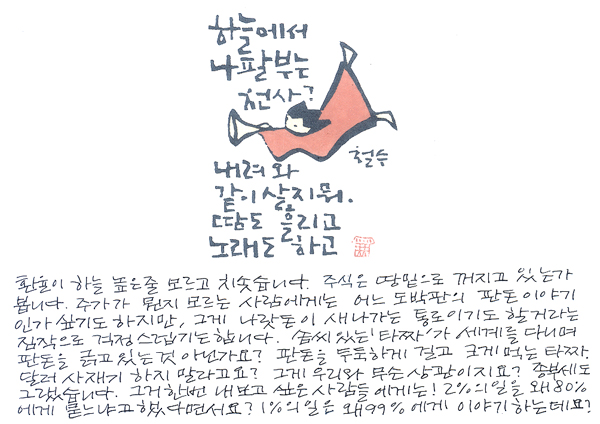 하늘에서
나팔부는
천사?
철수
내려와
같이 살지 뭐.
땀도 흘리고
노래도 하고
환율이 하늘 높은줄 모르고 치솟습니다. 주식은 땅밑으로 꺼지고 있는가
봅니다. 주가가 뭔지 모르는 사람에게는 어느 도박판의 판돈이야기
인가 싶기도 하지만, 그게 나랏돈이 새나가는 통로이기도 할거라는
짐작으로 걱정스럽기도합니다. 솜씨있는 '타짜'가 세계를 다니며
판돈을 긁고있는것 아닌가요? 판돈을 두둑하게 걸고 크게 먹는 타짜.
달러 사재기 하지 말라고요? 그게 우리와 무슨 상관이지요? 종부세도
그렇습니다. 그거 한번 내보고 싶은 사람들에게는! 2%의 일을 왜 80%
에게 묻느냐고 했다면서요? 1%의 일은 왜 99%에게 이야기 하는데요?